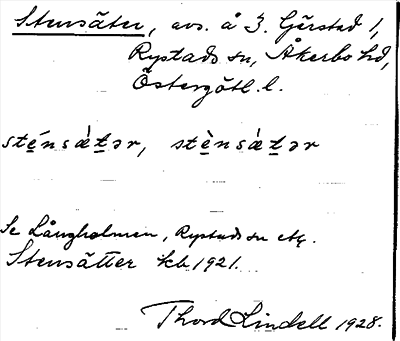 Stensäter, avs. å 3. Gärstad 1,
Rystads sn, Åkerbo hd,
Östergötl. l.
sté̱nsá̈ṯər, stè̱nsá̈ṯər
Se Långholmen, Rystads sn etc.
Stensätter kb 1921.
Thord Lindell 1928.